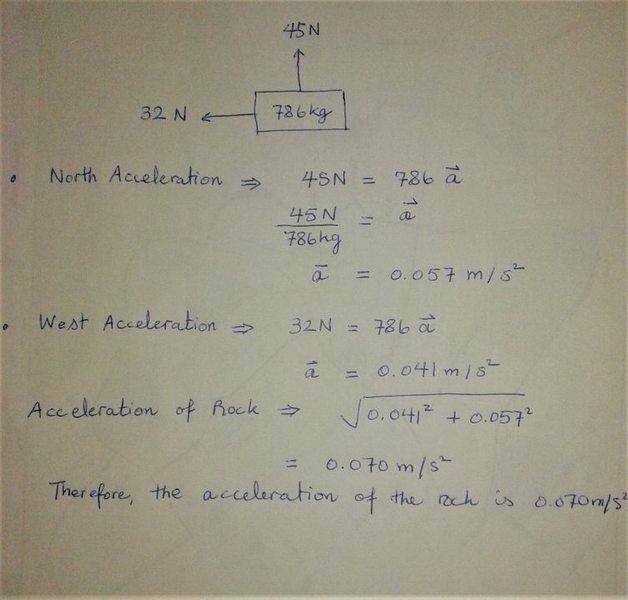 45N
32 N
786kg
• North Acceleration ⇒ 45N = 786 a⃗
45N / 786kg = a⃗
a⃗ = 0.057 m/s²
• West Acceleration ⇒ 32N = 786 a⃗
a⃗ = 0.041 m/s²
Acceleration of Rock ⇒ √(0.041² + 0.057²)
= 0.070 m/s²
Therefore, the acceleration of the rock is 0.070m/s²